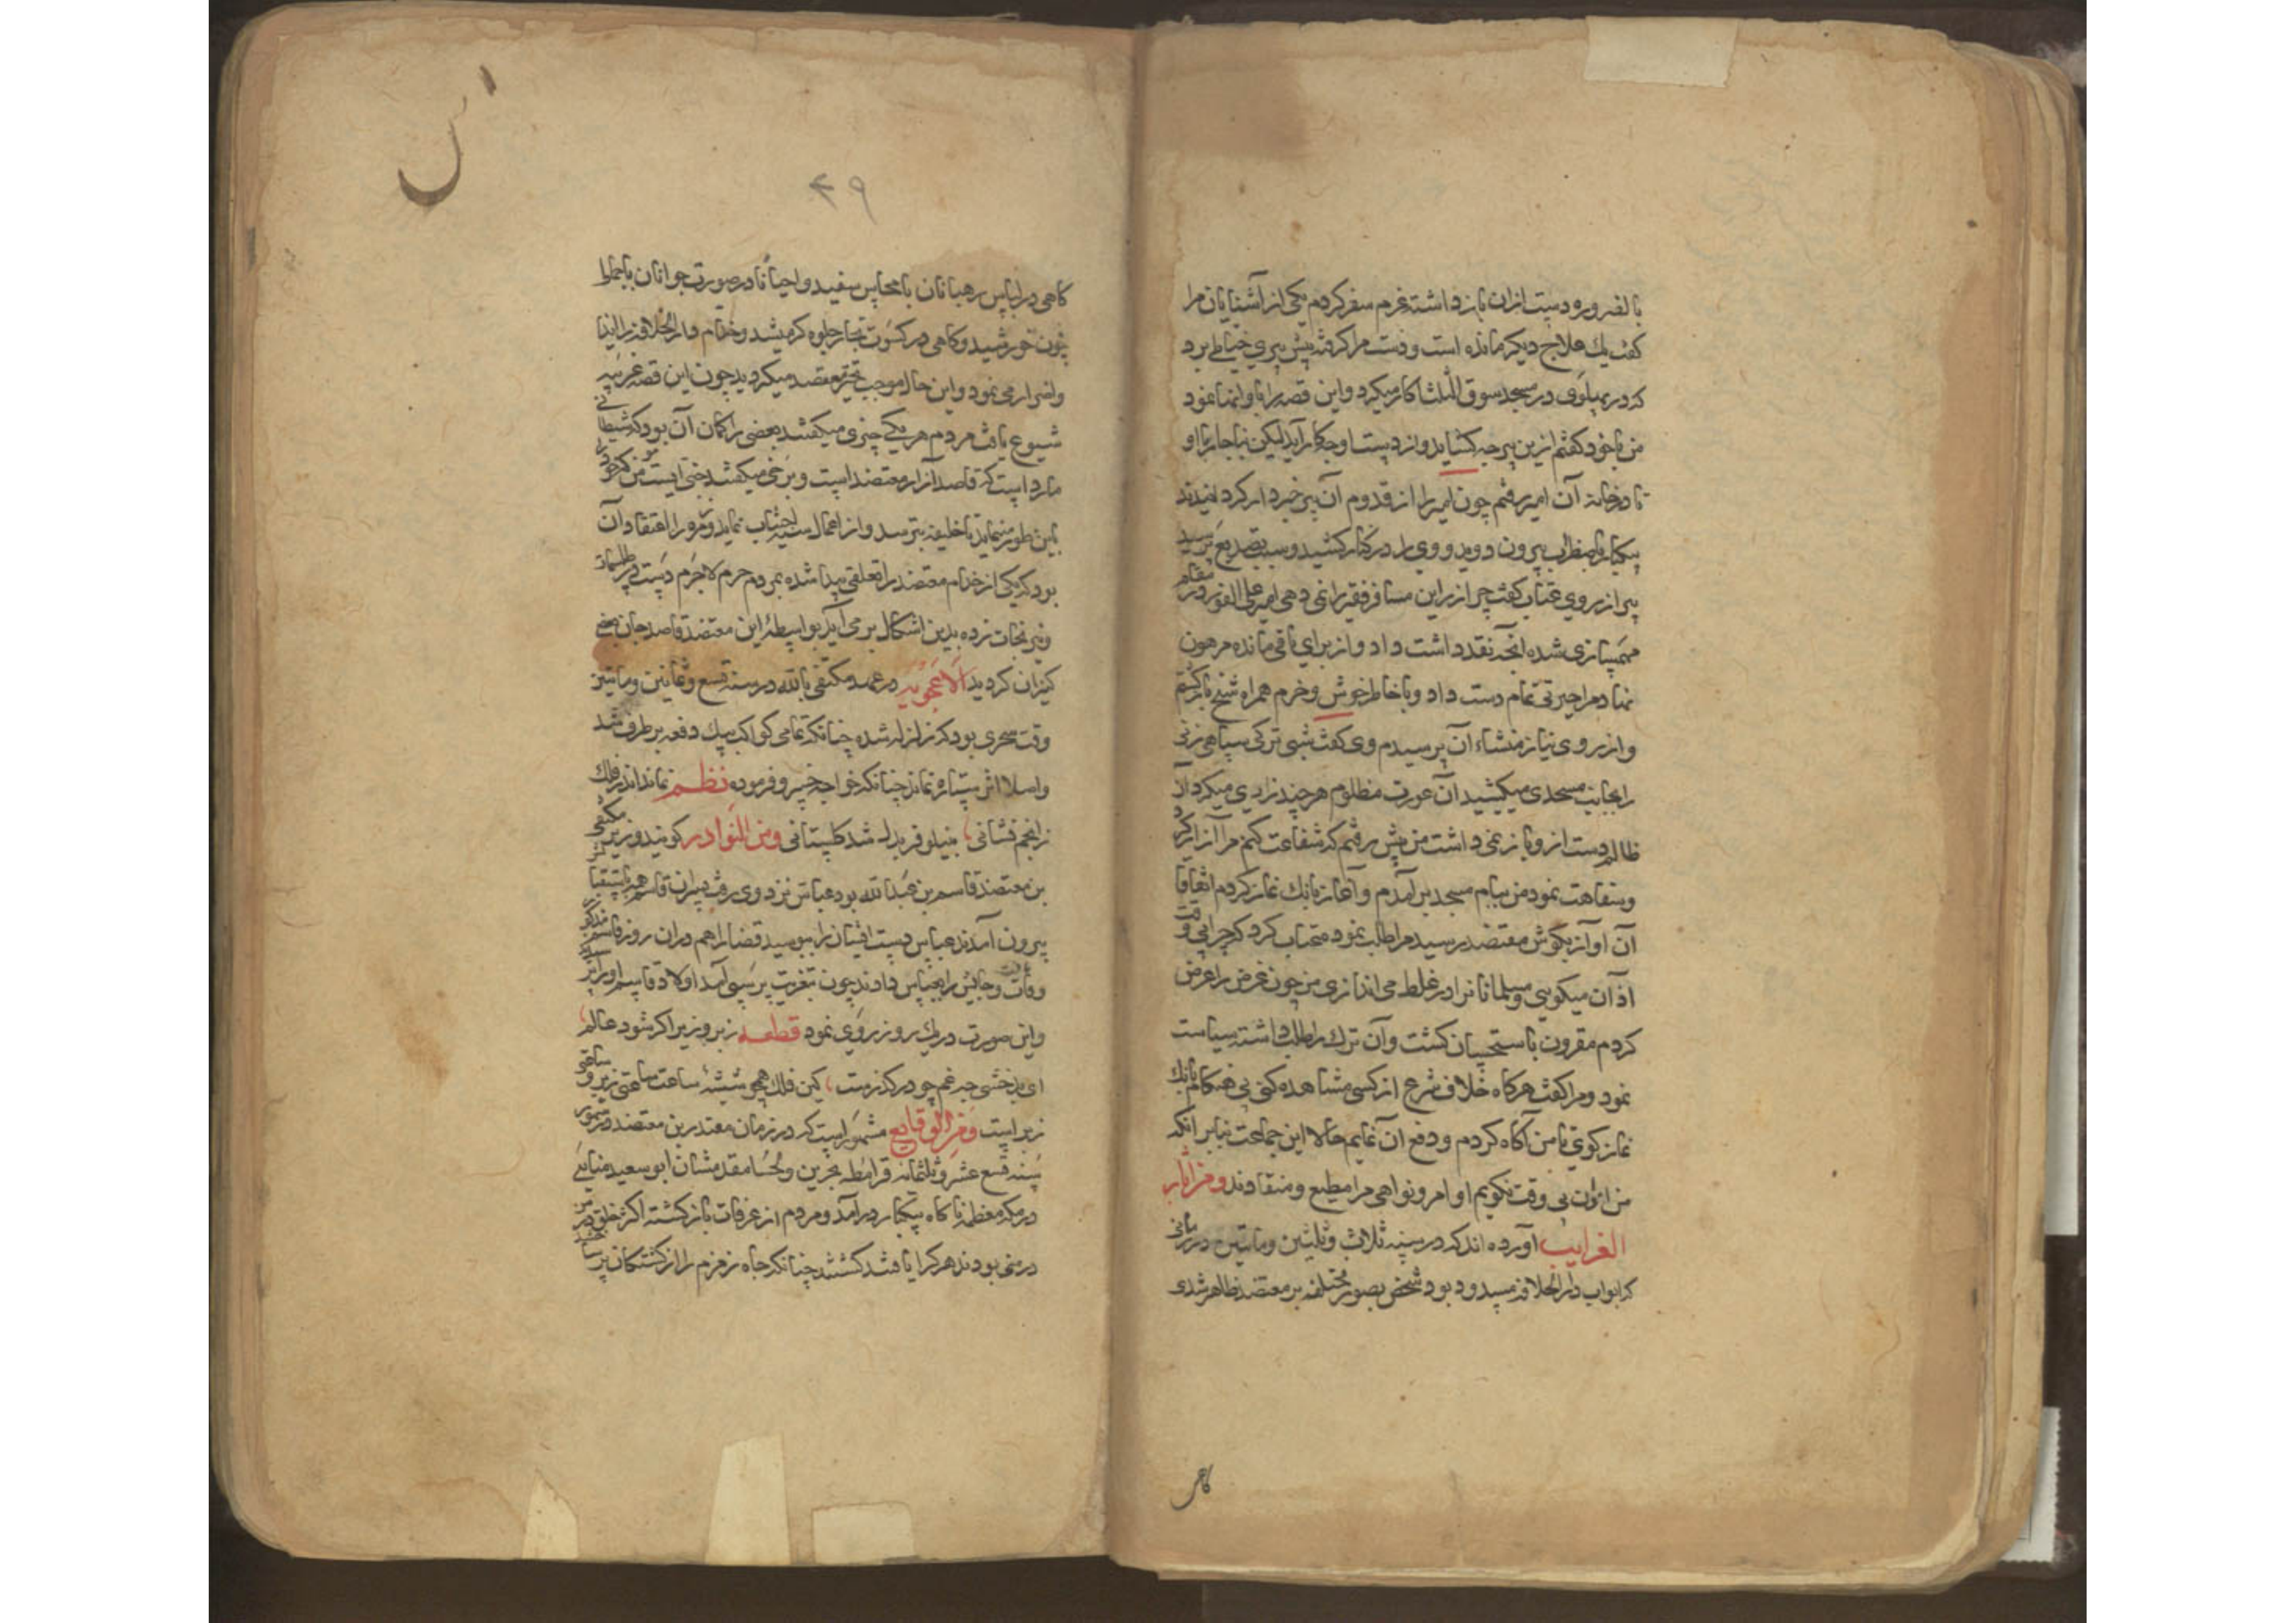 بالضروره دست ازان بازداشته عزم سفر کردم یکی از آشنایان مرا
کفت یک علاج دیکر مانده است و دست مرا کرفته پیش پیری خیاطی برد
که در پهلوی در مسجد سوق الثلثا کار میکرد و این قصه را باو انها نمود
من با خود کفتم ازین پیر چه کشاید و از دست او چه کار آید لیکن ناچار با او
تا در خانه آن امیر رفتم چون امیر را از قدوم آن پیر خبردار کردانیدند
بیکبار باضطراب بیرون دوید و وی را در کنار کشید و سبب تصدیع پرسید
پیر از روی عتاب کفت چرا زر این مسافر فقیر را نمی دهی امیر علی الفور در مقام
مهمسازی شده آنچه نقد داشت داد و از برای باقی مانده مرهون
نهاد مرا حیرتی تمام دست داد و با خاطر خوش و خرم همراه شیخ بازکشتم
و از روی نیاز منشاء آن پرسیدم وی کفت شبی ترکی سپاهی زنی
را بجانب مسجدی میکشید آن عورت مظلوم هر چند زاری میکرد آن
ظالم دست ازو باز نمی داشت من پیش رفتم که شفاعت کنم مرا آزار کرد
و سفاهت نمود من ببام مسجد برآمدم و آغاز بانک نماز کردم اتفاقا
آن آواز بکوش معتضد رسید مرا طلب نمود عتاب کرد که چرا بی وقت
اذان میکویی و مسلمانانرا در غلط می اندازی من چون غرض را عرض
کردم مقرون باستحسان کشت و آن ترک را طلب داشته سیاست
نمود و مرا کفت هرکاه خلاف شرع از کسی مشاهده کنی بی هنکام بانک
نماز کوی تا من آکاه کردم و دفع آن نمایم حالا این جماعت بنابر آنکه
من اذان بی وقت نکویم اوامر و نواهی مرا مطیع و منقادند ومن آثار
الغرایب آورده اند که در سنه ثلاث و ثلثین و ماتین در زمانی
که ابواب دار الخلافه مسدود بود شخصی بصور مختلفه بر معتضد ظاهر شدی
کاهی
٤٩
کاهی در لباس رهبانان با محاسن سفید و احیانا در صورت جوانان با جمال
چون خورشید و کاهی در کسوت تجار جلوه کر میشد و خدام دار الخلافه را ایذا
و اضرار می نمود و این حال موجب تحیر معتضد میکردید چون این قصه غریبه
شیوع یافت مردم هر یکی چیزی میکفتند بعضی را کمان آن بود که شیطانی
مارد است که قاصد آزار معتضد است و برخی میکفتند جنی ایست مؤمن که خود را
باین طور مینماید تا خلیفه بترسد و از اعمال سیئه اجتناب نماید و زمره را اعتقاد آن
بود که یکی از خدام معتضد را تعلقی پیدا شده بمردم حرم لاجرم دستی در طلسمات
و نیرنجات زده بدین اشکال بر می آید بواسطه این معتضد قاصد جان بعضی
کنیزان کردید الاعجوبه در عهد مکتفی بالله در سنه تسع و ثمانین و ماتین
وقت سحری بود که زلزله شده چنانکه تمامی کواکب بیک دفعه بر طرف شد
و اصلا اثر ستاره نماند چنانکه خواجه خسرو فرموده نظم نماند اندر فلک
ز انجم نشانی بنیلوفر بدل شد کلستانی ومن النوادر کویند وزیر مکتفی
بن معتضد قاسم بن عبدالله بود عباس نزد وی رفت پسران قاسم همه باستقبا
بیرون آمدند عباس دست ایشان را ببوسید قضا را هم دران روز قاسم مذکور
وفات یافت و جایش را بعباس دادند چون بتعزیت پرسی آمد اولاد قاسم
و این صورت در یک روز روی نمود قطعه زبر و زیر اکر شود عالم
ای بدخشی چه غم چو در کذرست کین فلک همچو شیشه ساعت ساعتی زیر و ساعتی
زبر است ومن الوقایع مشهور است که در زمان مقتدر بن معتضد در شهور
سنه تسع عشر و ثلثمائه قرامطه بحرین و لحسا مقدمشان ابو سعید جنابی
در مکه معظمه ناکاه بیکبار در آمد و مردم از عرفات بازکشته اکثر خلق
در منی بودند هر کرا یافتند کشتند چنانکه چاه زمزم را از کشتکان پر